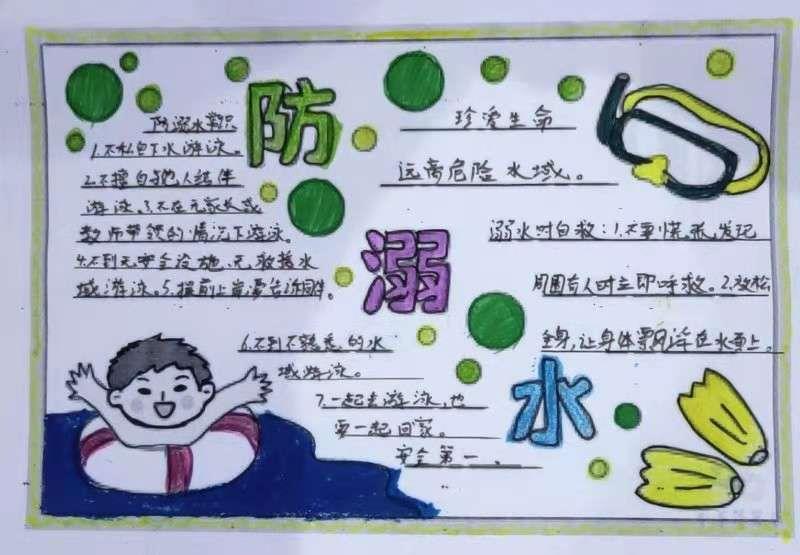 防溺水
防溺水常识
1.不私自下水游泳。
2.不擅自与他人结伴
游泳。3.不在无家长或
教师带领的情况下游泳。
4.不到无安全设施,无救援水
域游泳。5.提前上岸要告诉同伴。
6.不到不熟悉的水
域游泳。
7.一起去游泳,也
要一起回家。
安全第一、
珍爱生命
远离危险水域。
溺水时自救:1.不要慌张,发现
周围有人时立即呼救。2.放松
全身,让身体飘浮在水面上。